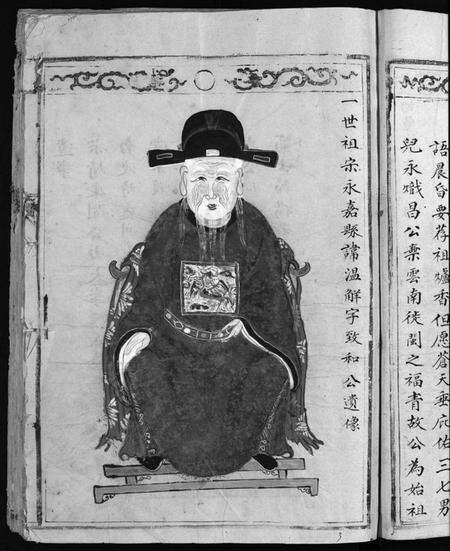 語晨昏要荐祖爐香但愿蒼天垂庇佑三七男
兒永熾昌公棄雲南徙閩之福青故公為始祖
一世祖宗永嘉縣諱溫解字致和公遺像